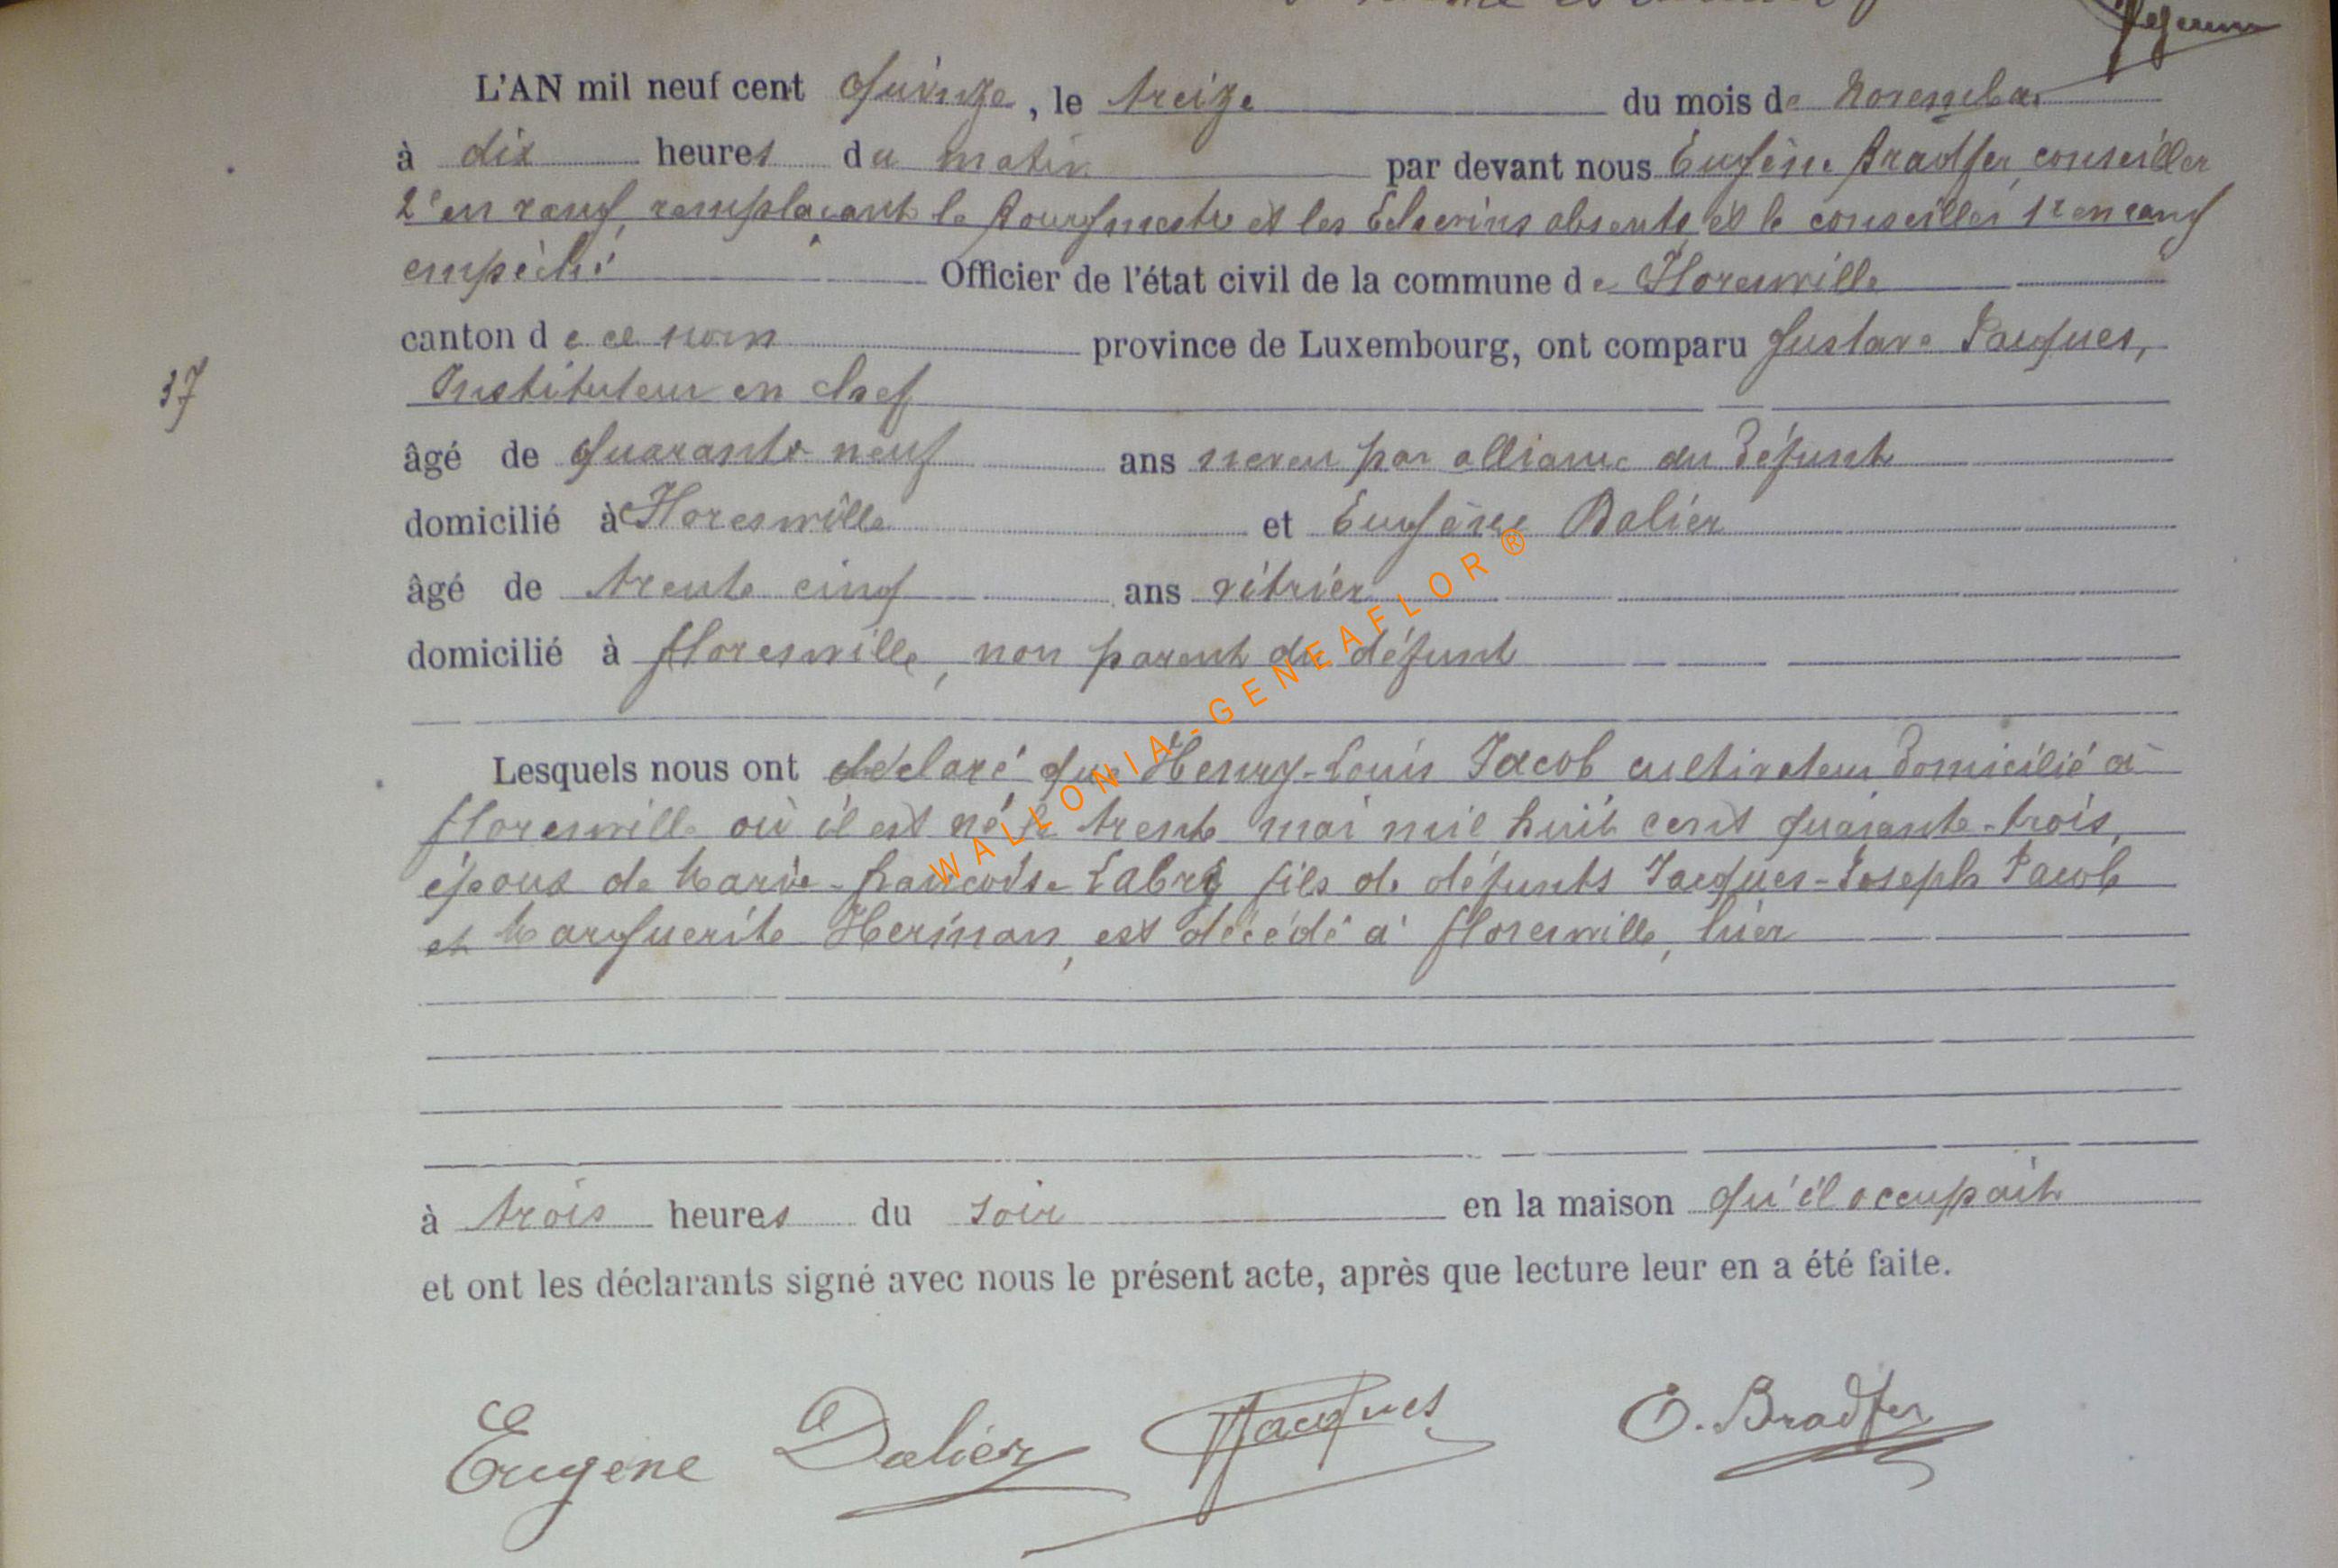 L'AN mil neuf cent quinze, le treize du mois de Novembre
à dix heures du matin par devant nous Eugène Bradfer, conseiller
2e en rang, remplaçant le Bourgmestre et les Echevins absents, et le conseiller 1r en rang
empêché Officier de l'état civil de la commune de Florenville
canton de ce nom province de Luxembourg, ont comparu Gustave Jacques,
Instituteur en chef
37
âgé de quarante neuf ans neveu par alliance du défunt
domicilié à Florenville et Eugène Dalier
âgé de trente cinq ans vitrier
domicilié à Florenville, non parent du défunt
Lesquels nous ont déclaré que Henry-Louis Jacob cultivateur domicilié à
Florenville où il est né le trente mai mil huit cent quarante-trois,
époux de Marie-Françoise Labry fils de défunts Jacques-Joseph Jacob
et Marguerite Herman, est décédé à Florenville, hier
à trois heures du soir en la maison qu'il occupait
et ont les déclarants signé avec nous le présent acte, après que lecture leur en a été faite.
Eugene Dalier Jacques E. Bradfer
WALLONIA-GENEAFLOR®